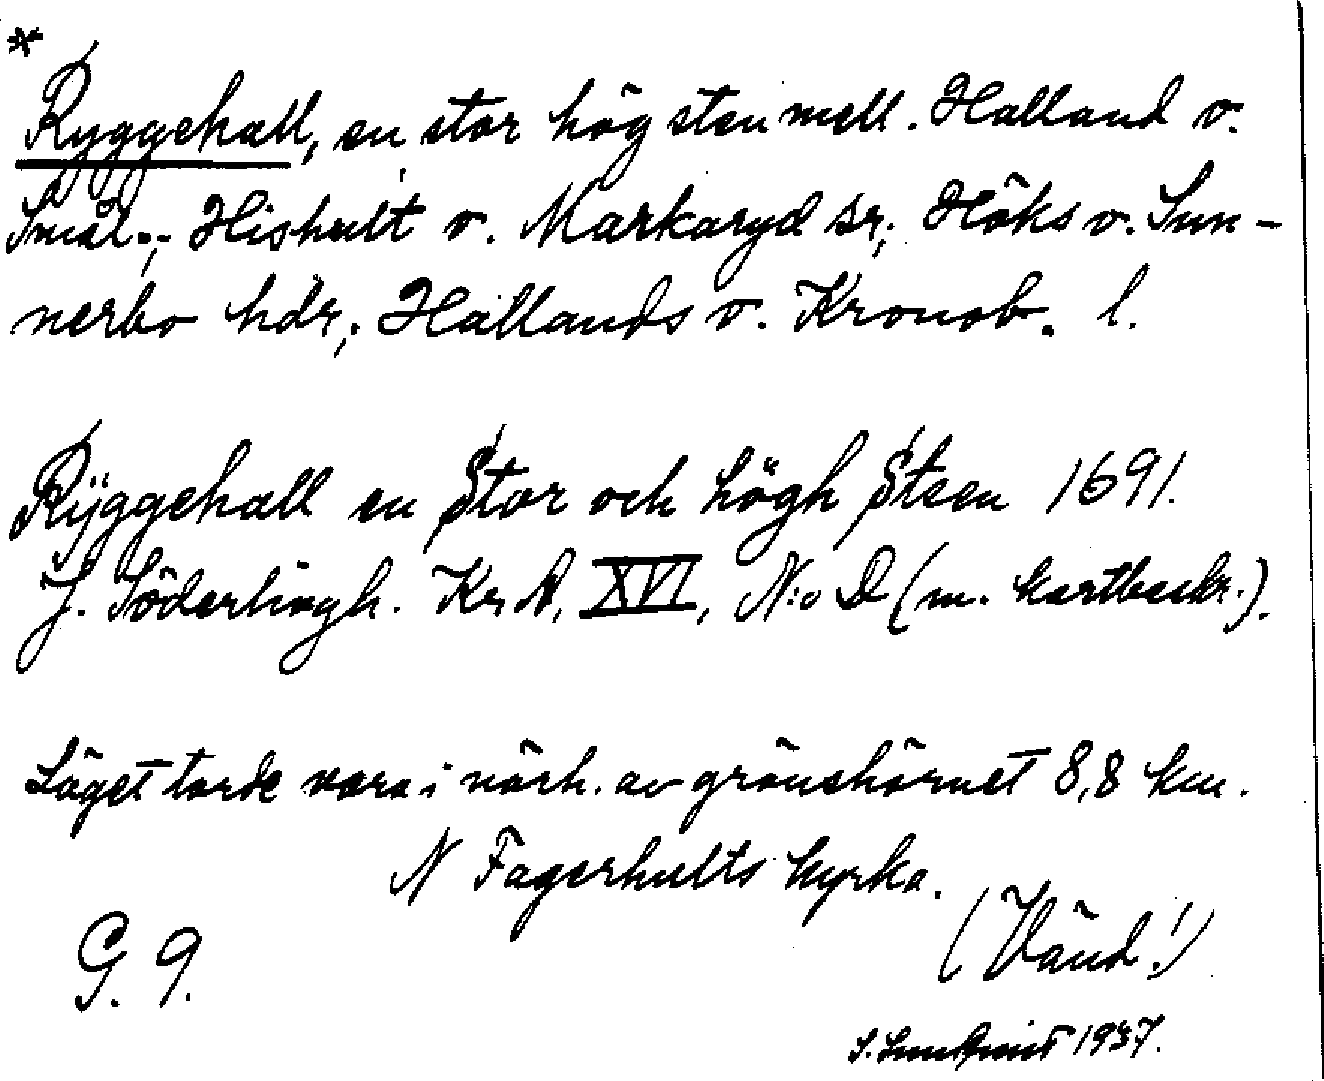 *
Ryggehall, en stor hög sten mell. Halland o.
Smål.; Hishult o. Markaryd sr; Höks o. Sun-
nerbo hdr; Hallands o. Kronob. l.
Rÿggehall en Stor och högh Steen 1691.
J. Söderlingh. Kr A, XVI, N:o D (m. kartbeskr.).
Läget torde vara i närh. av gränshörnet 8,8 km.
N Fagerhults kyrka.
(Vänd!)
G. 9.
S. Sundqvist 1937.